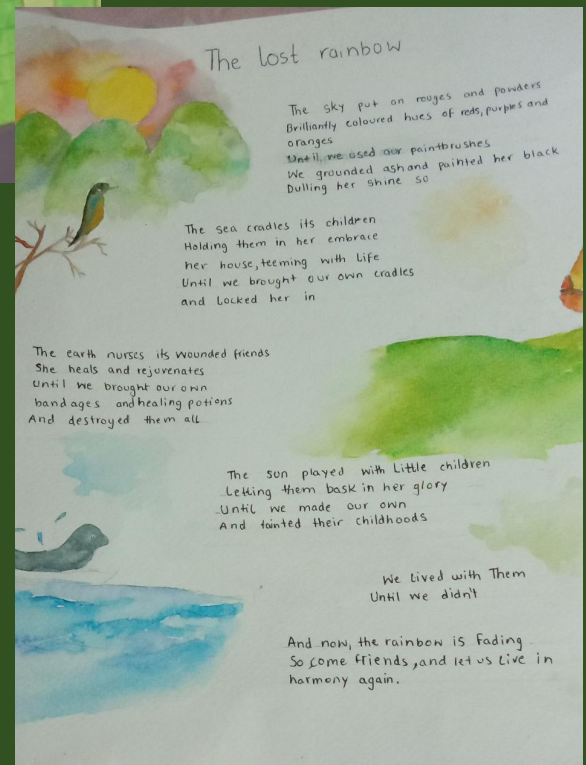 The lost rainbow
The sky put on rouges and powders
Brilliantly coloured hues of reds, purples and
oranges
Until we used our paintbrushes
We grounded ash and painted her black
Dulling her shine so
The sea cradles its children
Holding them in her embrace
her house, teeming with life
Until we brought our own cradles
and locked her in
The earth nurses its wounded friends
She heals and rejuvenates
Until we brought our own
bandages and healing potions
And destroyed them all
The sun played with little children
Letting them bask in her glory
Until we made our own
And tainted their childhoods
We lived with Them
Until we didn't
And now, the rainbow is fading
So come friends, and let us live in
harmony again.